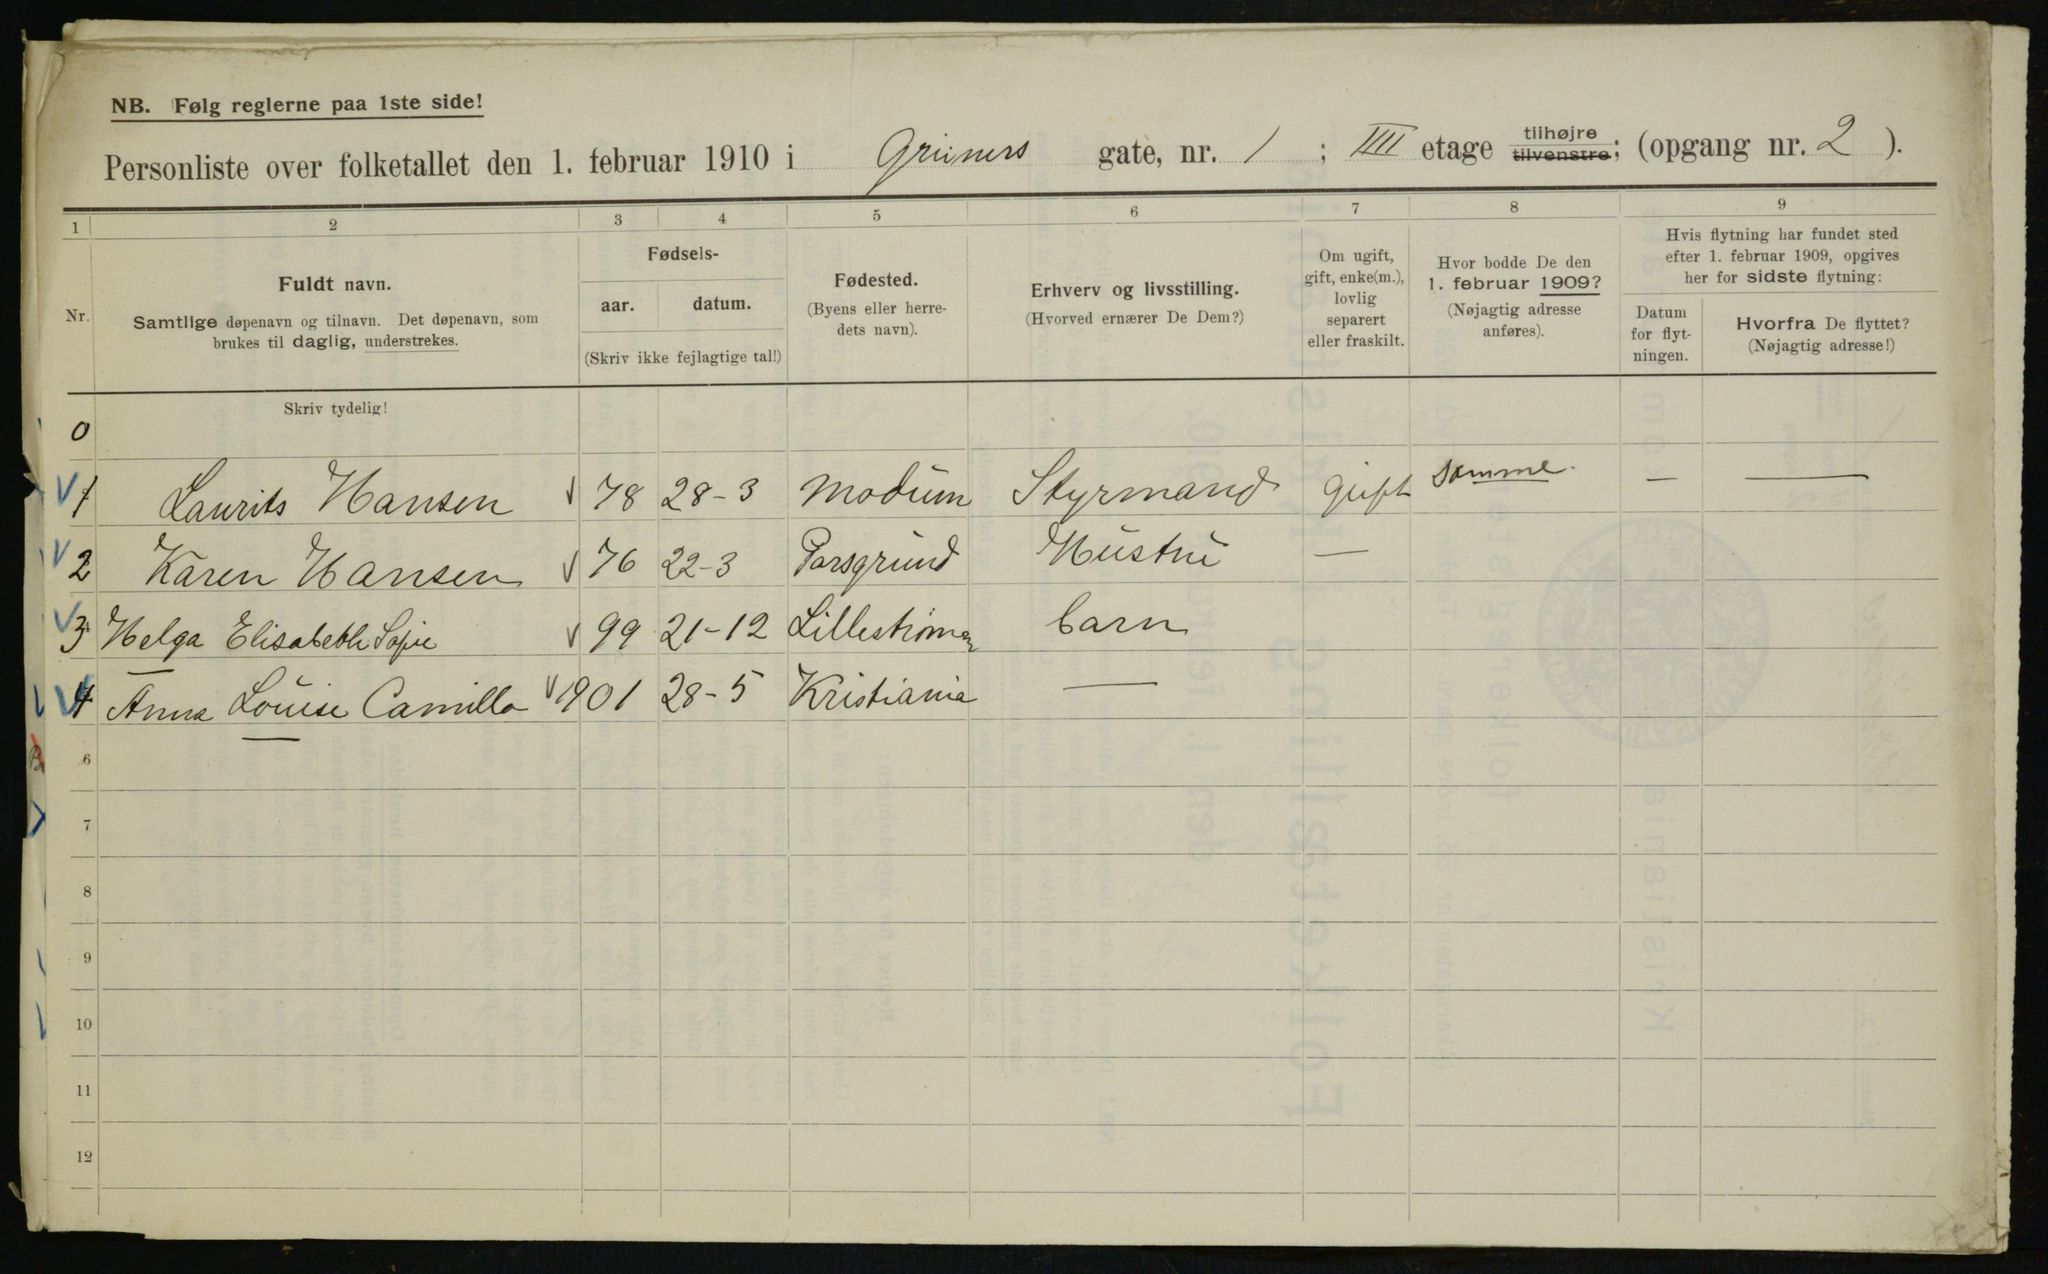 NB. Følg reglerne paa 1ste side!
Personliste over folketallet den 1. februar 1910 i Grüners gate, nr. 1 ; IIII etage tilhøjre tilvenstre; (opgang nr. 2 ).
1 2 3 4 5 6 7 8 9
Nr.
Fuldt navn.
Samtlige døpenavn og tilnavn. Det døpenavn, som
brukes til daglig, understrekes.
Fødsels-
aar. datum.
(Skriv ikke fejlagtige tal!)
Fødested.
(Byens eller herre-
dets navn).
Erhverv og livsstilling.
(Hvorved ernærer De Dem?)
Om ugift,
gift, enke(m.),
lovlig
separert
eller fraskilt.
Hvor bodde De den
1. februar 1909?
(Nøjagtig adresse
anføres).
Hvis flytning har fundet sted
efter 1. februar 1909, opgives
her for sidste flytning:
Datum
for flyt-
ningen.
Hvorfra De flyttet?
(Nøjagtig adresse!)
Skriv tydelig!
0
1 Laurits Hansen 78 28-3 Modum Styrmand gift Samme. — —
2 Karen Hansen 76 22-3 Porsgrund Hustru —
3 Helga Elisabeth Sofie 99 21-12 Lillestrømen barn
4 Anna Louise Camilla 1901 28-5 Kristiania —
6
7
8
9
10
11
12